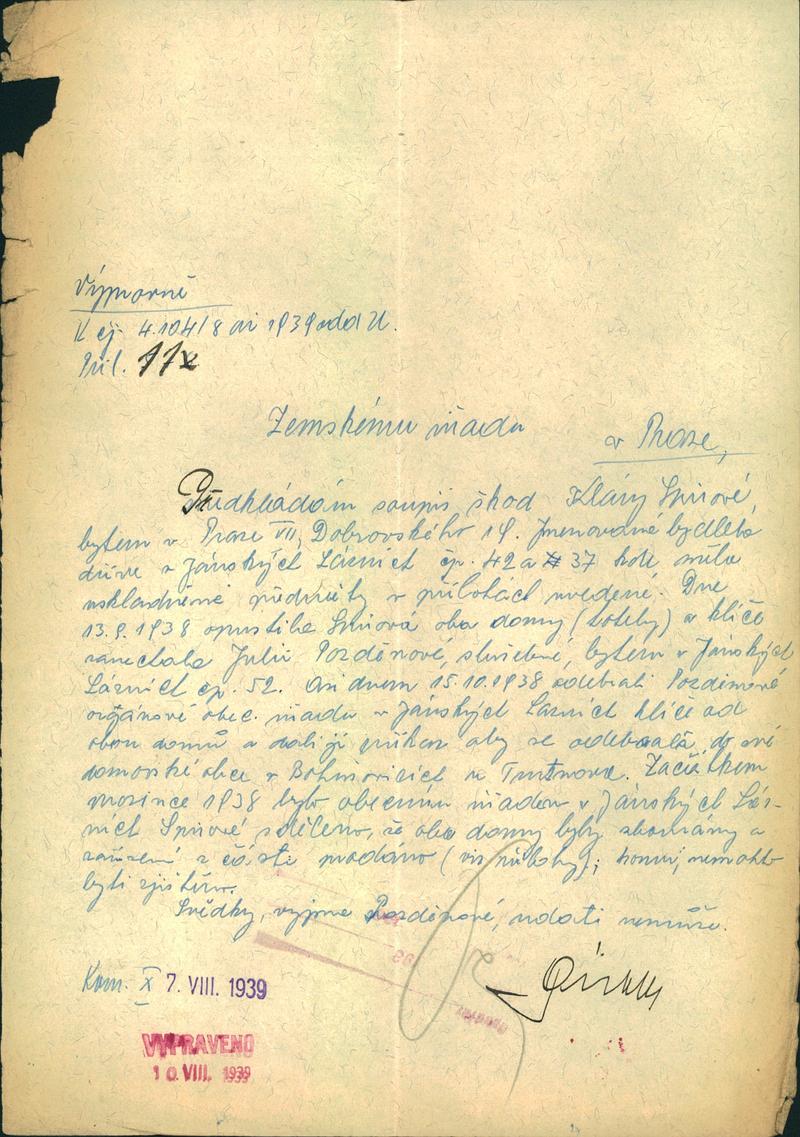 Výpravně
K čj. 4.104/8 ai 1939 odd II.
Příl. 11x
Zemskému úřadu
v Praze,
Předkládám soupis škod Kláry Spirové,
bytem v Praze VII, Dobrovského 14. Jmenovaná bydlela
dříve v Jánských Lázních čp. 42 a 37 kde měla
uskladněné předměty v přílohách uvedené. Dne
13.9.1938 opustila Spirová oba domy (hotely) a klíče
zanechala Julii Pozděnové, služebné, bytem v Jánských
Lázních čp. 52. Asi dnem 15.10.1938 odebrali Pozděnové
orgánové obec. úřadu v Jánských Lázních klíče od
obou domů a dali jí příkaz aby se odebrala do své
domovské obce v Bohuslavicích u Trutnova. Začátkem
prosince 1938 bylo obecním úřadem v Jánských Láz-
ních Spirové sděleno, že oba domy byly zbourány a
zařízení z části prodáno (viz přílohy); komu, nemohlo
býti zjištěno.
Svědky, vyjma Pozděnové, udati nemůže.
Kom. X 7. VIII. 1939
VYPRAVENO
10. VIII. 1939